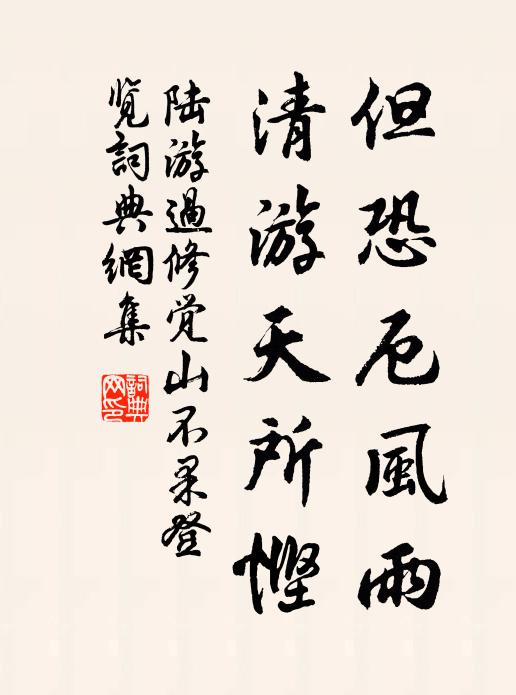 但恐厄風雨
清游天所慳
陸游過修覚山不果登
覧詞典網集
詞典
网印